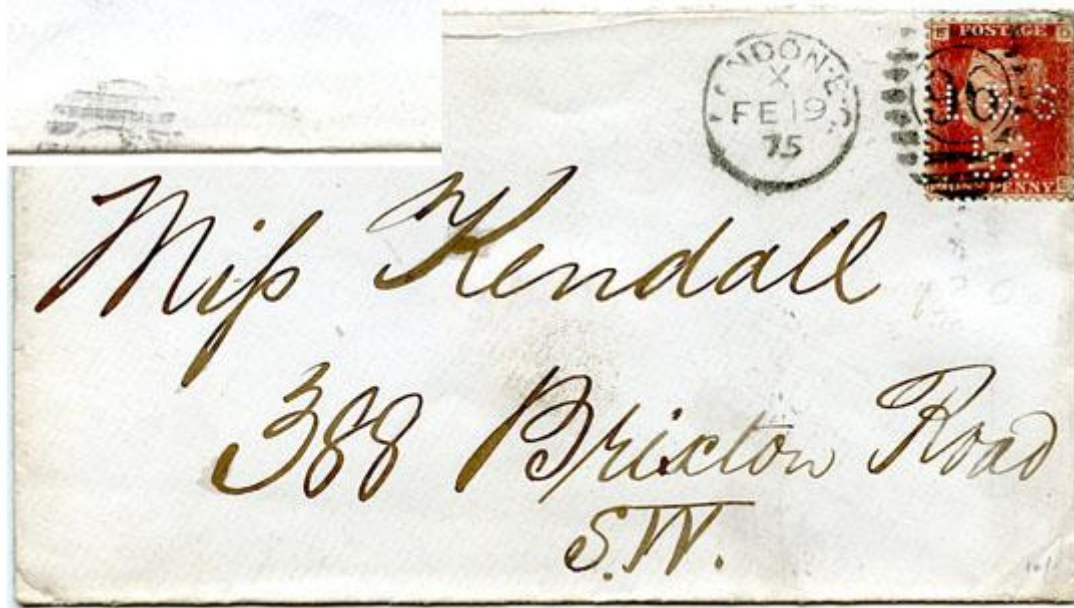 LONDON·E·C
X
FE 19
75
96
POSTAGE
ONE PENNY
Miſs Kendall
388 Brixton Road
S.W.